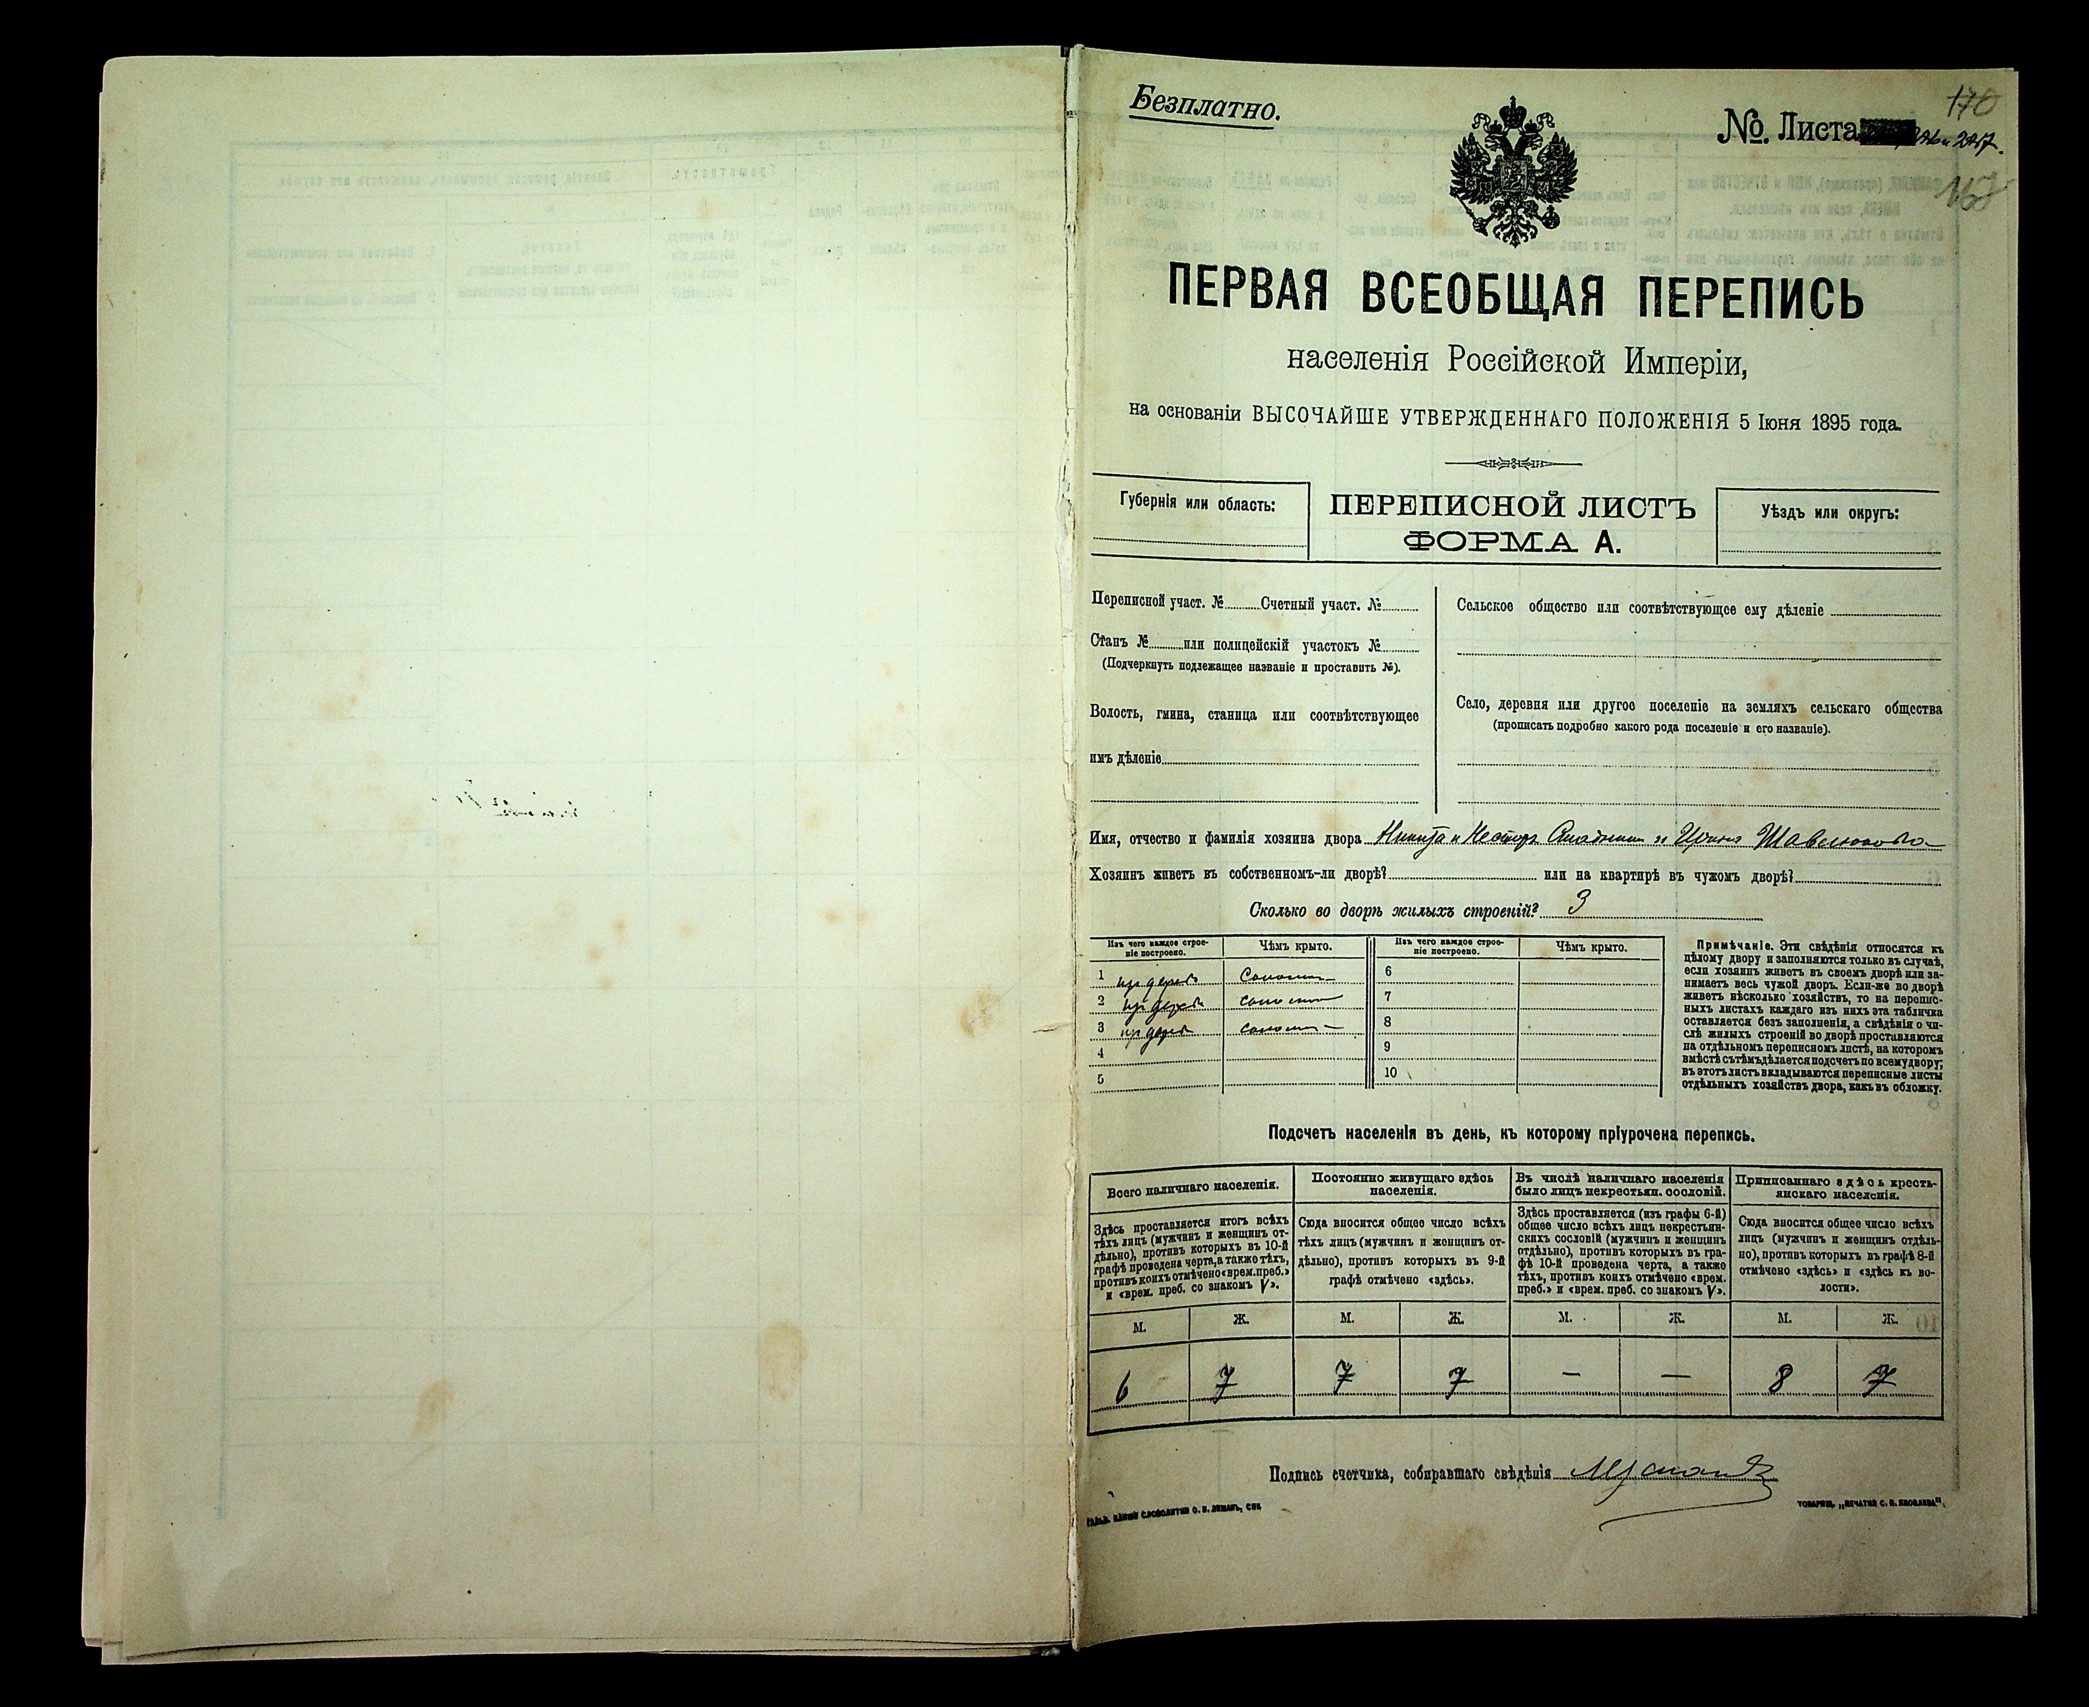 Безплатно.
170
№. Листа
ПЕРВАЯ ВСЕОБЩАЯ ПЕРЕПИСЬ
населенія Россійской Имперіи,
на основаніи ВЫСОЧАЙШЕ УТВЕРЖДЕННАГО ПОЛОЖЕНІЯ 5 Іюня 1895 года.
Губернія или область:
ПЕРЕПИСНОЙ ЛИСТЪ
ФОРМА А.
Уѣздъ или округъ:
Переписной участ. № Счетный участ. №
Станъ № или полицейскій участокъ №
(Подчеркнуть подлежащее названіе и проставить №).
Волость, гмина, станица или соотвѣтствующее
имъ дѣленіе
Сельское общество или соотвѣтствующее ему дѣленіе
Село, деревня или другое поселеніе на земляхъ сельскаго общества
(прописать подробно какого рода поселеніе и его названіе).
Имя, отчество и фамилія хозяина двора Никита и Несторъ
Хозяинъ живетъ въ собственномъ-ли дворѣ? или на квартирѣ въ чужомъ дворѣ?
Сколько во дворѣ жилыхъ строеній? 3
Изъ чего каждое строе-
ніе построено.
Чѣмъ крыто.
Изъ чего каждое строе-
ніе построено.
Чѣмъ крыто.
1
2
3
4
5
6
7
8
9
10
Примѣчаніе. Эти свѣдѣнія относятся къ
цѣлому двору и заполняются только въ случаѣ,
если хозяинъ живетъ въ своемъ дворѣ или за-
нимаетъ весь чужой дворъ. Если-же во дворѣ
живетъ нѣсколько хозяйствъ, то на перепис-
ныхъ листахъ каждаго изъ нихъ эта табличка
оставляется безъ заполненія, а свѣдѣнія о чи-
слѣ жилыхъ строеній во дворѣ проставляются
на отдѣльномъ переписномъ листѣ, на которомъ
вмѣстѣ съ тѣмъ дѣлается подсчетъ по всему двору;
въ этотъ листъ вкладываются переписные листы
отдѣльныхъ хозяйствъ двора, какъ въ обложку.
Подсчетъ населенія въ день, къ которому пріурочена перепись.
Всего наличнаго населенія.
Здѣсь проставляется итогъ всѣхъ
тѣхъ лицъ (мужчинъ и женщинъ от-
дѣльно), противъ которыхъ въ 10-й
графѣ проведена черта, а также тѣхъ,
противъ коихъ отмѣчено «врем. преб.»
и «врем. преб. со знакомъ V».
Постоянно живущаго здѣсь
населенія.
Сюда вносится общее число всѣхъ
тѣхъ лицъ (мужчинъ и женщинъ от-
дѣльно), противъ которыхъ въ 9-й
графѣ отмѣчено «здѣсь».
Въ числѣ наличнаго населенія
было лицъ некрестьян. сословій.
Здѣсь проставляется (изъ графы 6-й)
общее число всѣхъ лицъ некрестьян-
скихъ сословій (мужчинъ и женщинъ
отдѣльно), противъ которыхъ въ гра-
фѣ 10-й проведена черта, а также
тѣхъ, противъ коихъ отмѣчено «врем.
преб.» и «врем. преб. со знакомъ V».
Приписаннаго здѣсь кресть-
янскаго населенія.
Сюда вносится общее число всѣхъ
лицъ (мужчинъ и женщинъ отдѣль-
но), противъ которыхъ въ графѣ 8-й
отмѣчено «здѣсь» и «здѣсь къ во-
лости».
М. Ж. М. Ж. М. Ж. М. Ж.
6 7 7 7 — — 8 7
Подпись счетчика, собиравшаго свѣдѣнія
ТОВАРИЩ. „ПЕЧАТНЯ С. П. ЯКОВЛЕВА“.